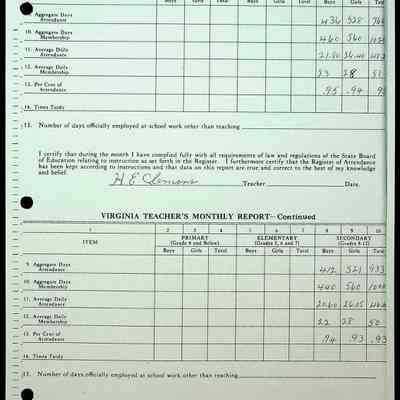 Boys Girls Total Boys Girls Total Boys Girls
9. Aggregate Days Attendance 436 528
10. Aggregate Days Membership 460 560
11. Average Daily Attendance 21.80 26.40
12. Average Daily Membership 23 28 51
13. Per Cent of Attendance .95 .94
14. Times Tardy
15. Number of days officially employed at school work other than teaching
I certify that during the month I have complied fully with all requirements of law and regulations of the State Board
of Education relating to instruction as set forth in the Register. I furthermore certify that the Register of Attendance
has been kept according to instructions and that data on this report are true and correct to the best of my knowledge
and belief.
H E Clemons Teacher Date.
VIRGINIA TEACHER'S MONTHLY REPORT—Continued
1 2 3 4 5 6 7 8 9 10
ITEM PRIMARY (Grade 4 and Below) ELEMENTARY (Grades 5, 6 and 7) SECONDARY (Grades 8-12)
Boys Girls Total Boys Girls Total Boys Girls Total
9. Aggregate Days Attendance 412 521 933
10. Aggregate Days Membership 440 560
11. Average Daily Attendance 20.60 26.05
12. Average Daily Membership 22 28 50
13. Per Cent of Attendance .94 .93 .93
14. Times Tardy
15. Number of days officially employed at school work other than teaching